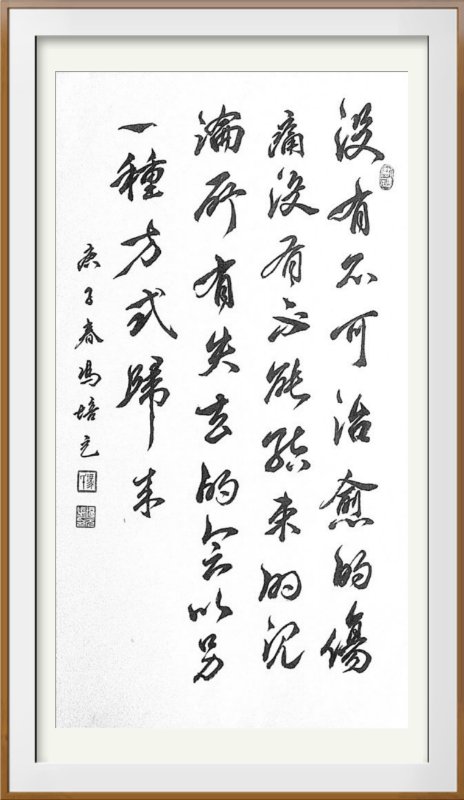 没有不可治愈的傷
痛没有不能结束的沉
淪所有失去的会以另
一種方式歸来
庚子春冯培元